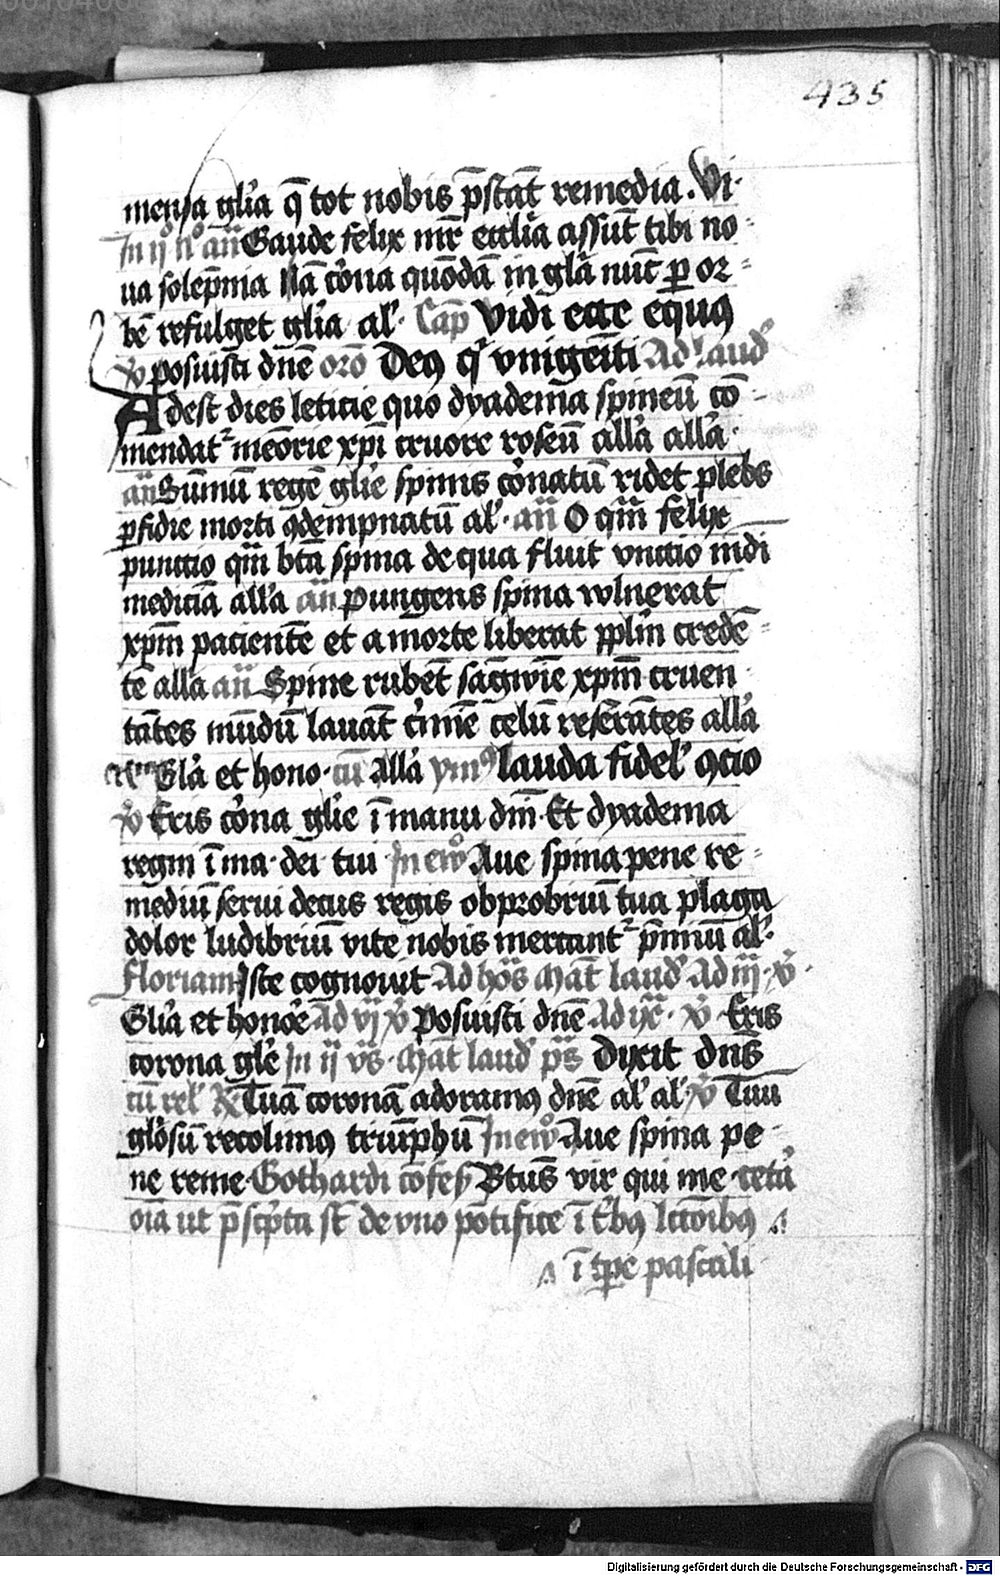 435
mensa gl'ia q̄ tot nobis p̄stāt remedia. Vi
In ijº nº an̄ Gaude felix mr̄ eccl'ia assūt tibi no=
ua solēpnia Nā cºona quōdā in glā nūc ꝑ or=
bē refulget gl'ia al'. Cap̄ Vidi ecce equꝯ
℣ posuisti dn̄e orō Deꝯ qⁱ vnigeīti Ad laud'
Adest dies leticie quo dyadema spineū cō=
mendatᵣ meōrie xp̄i cruore roseū all'a all'a.
an̄ Sūmū regē gl'ie spinis cºonatū ridet plebs
ꝑfidie morti ꝯdempnatū al'. an̄ O qm̄ felix
punctio qm̄ btā spina de qua fluit vnctio mūdi
mediciā all'a an̄ Pungens spina wlnerat
xp̄m pacientē et a morte liberat pp̄l'm credē=
tē alla an̄ Spine rubēt sāgwīe xp̄m cruen
tātes mūdū lauāt cⁱmīe celū reserātes all'a
Gl'a et hono. cū Alla ymꝯ lauda fidel' ꝯcio
℣ Eris cºona gl'ie ī manu dn̄i Et dyadema
regni ī ma. dei tui In ewº Aue spina pene re=
mediū serui decus regis obprobriū tua plaga
dolor ludibriū vite nobis mercantᵣ p̄miū al'.
Floriani Iste cognouit Ad hōs Māt laud' Ad iij ℣
Gl'ia et honore Ad vj ℣ Posuisti dn̄e Ad ix ℣ Eris
corona gl'e In ij vs̄. Māt laud' ps̄ Dixit dn̄s
cū rel' ℟ Tuā coronā adoramꝯ dn̄e al' al' ℣ Tuū
glºosū recolimꝯ triūphū In ewº Aue spina pe=
ne reme Gothardi cōfess Btūs vir qui me cetā
oīa ut p̄scⁱpta st̄ de vno pōtifice ī tⁱbꝯ lc̄cōibꝯ
ī tp̄e pascali
Digitalisierung gefördert durch die Deutsche Forschungsgemeinschaft - DFG